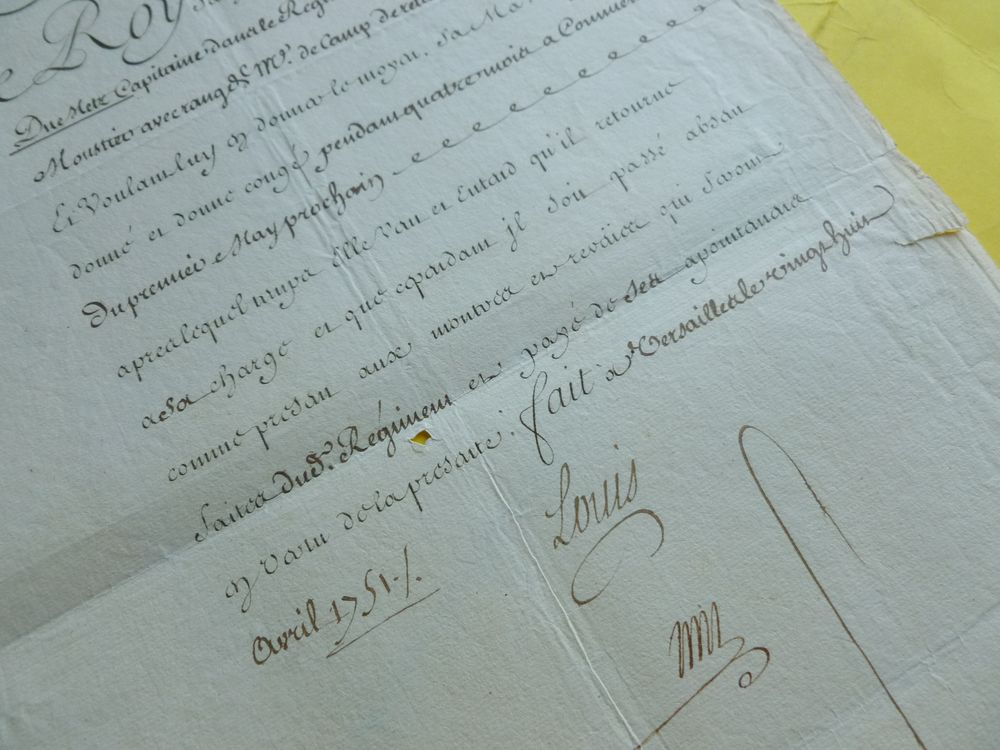 Roy
Du Metz Capitaine dans le Regi
Monstier avec rang de Mre. de Camp de
Et Voulant luy en donner le moyen, Sa Ma
donné et donne congé pendant quatre mois a Commen
Du premier May prochain
apres lequel temps Elle Veut et Entend qu'il retourne
a Sa charge et que cependant il soit passé absent
comme present aux montres et reveües qui seront
faites dud. Régiment et payé de ses apointemens
en vertu de la presente. fait a Versailles le vingt huit
Avril 1751./.
Louis